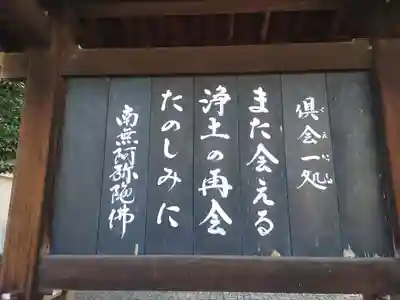 倶会一処
くえいっしょ
また会える
浄土の再会
たのしみに
南無阿弥陀佛